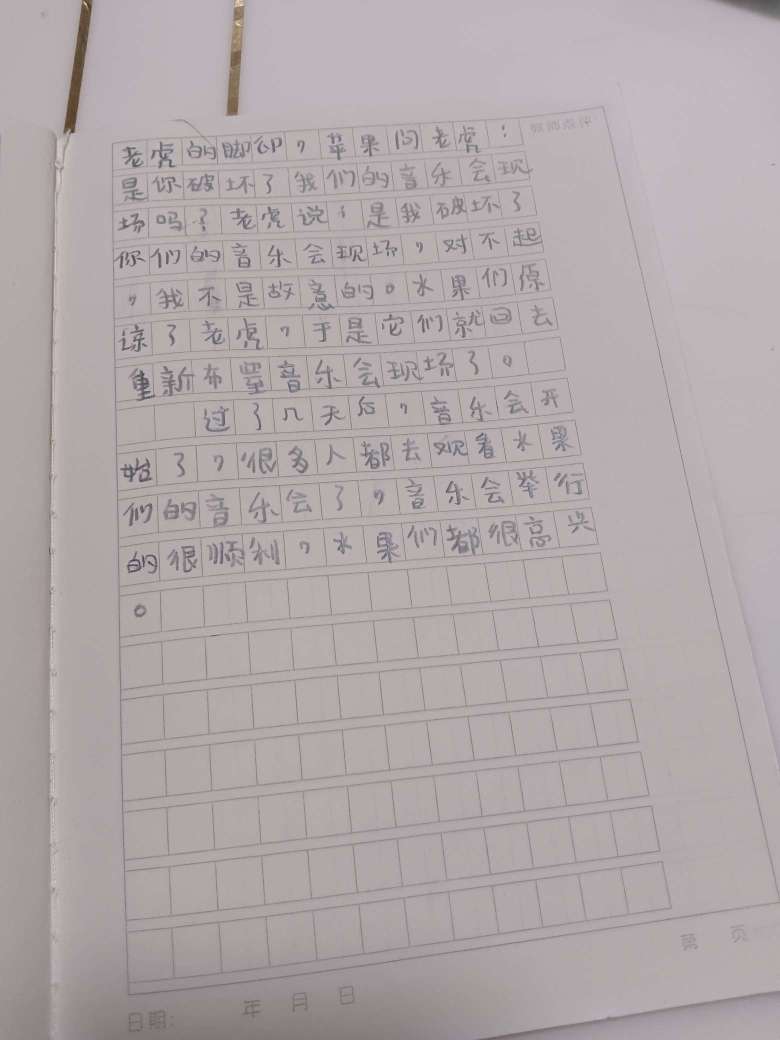 教师点评
老虎的脚印，苹果问老虎：
是你破坏了我们的音乐会现
场吗？老虎说：是我破坏了
你们的音乐会现场，对不起
，我不是故意的。水果们原
谅了老虎，于是它们就回去
重新布置音乐会现场了。
过了几天后，音乐会开
始了，很多人都去观看水果
们的音乐会了，音乐会举行
的很顺利，水果们都很高兴
。
第 页
日期： 年 月 日